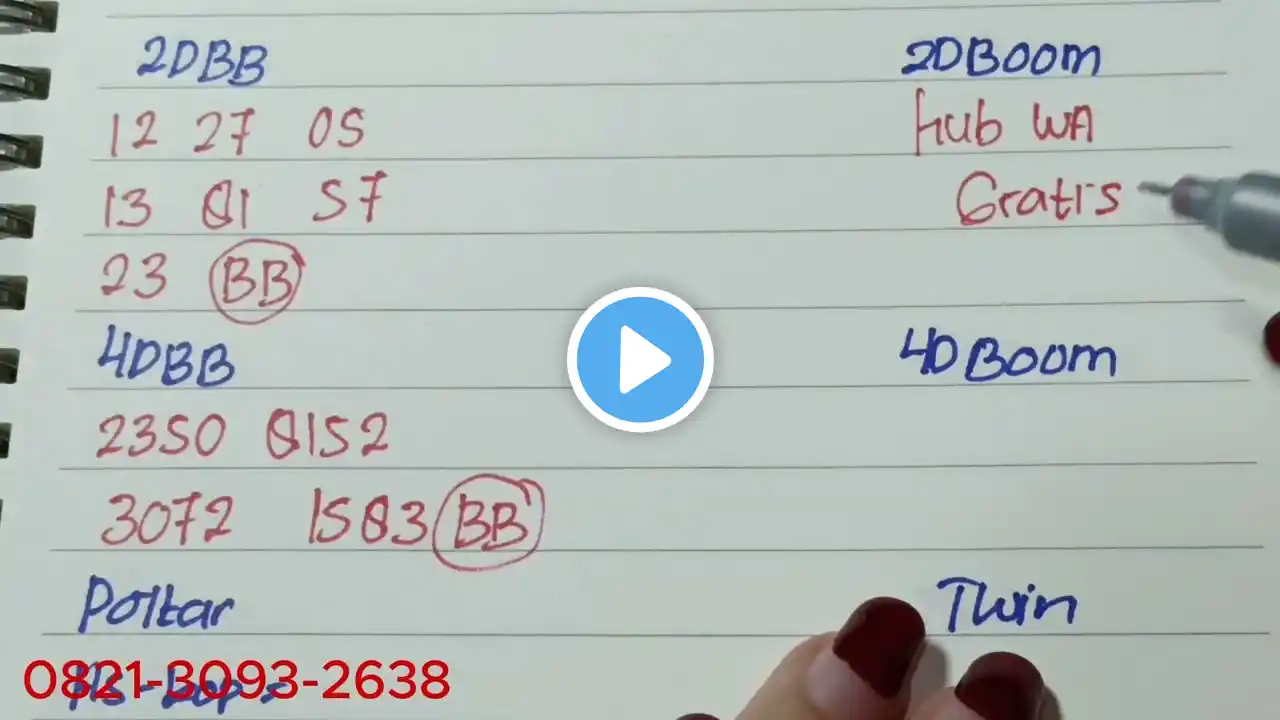 2DBB 2DBoom
12 27 05 hub WA
13 01 57 Gratis
23 BB
4DBB 4D Boom
2350 0152
3072 1503 BB
Poltar Twin
0821-3093-2638